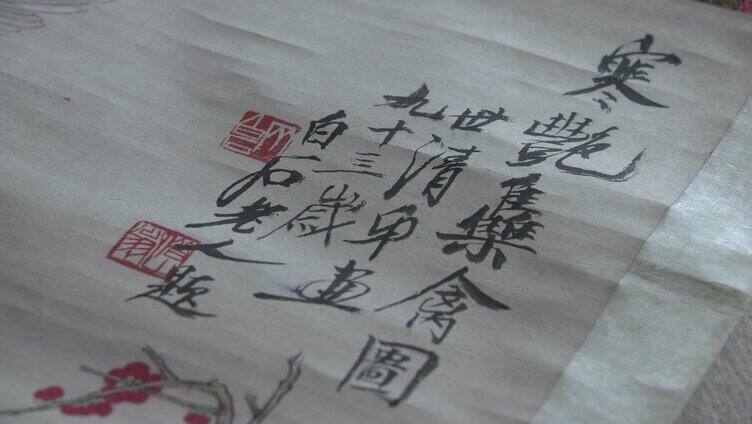 寒艷集禽圖
世清畫
九十三歲
白石老人題